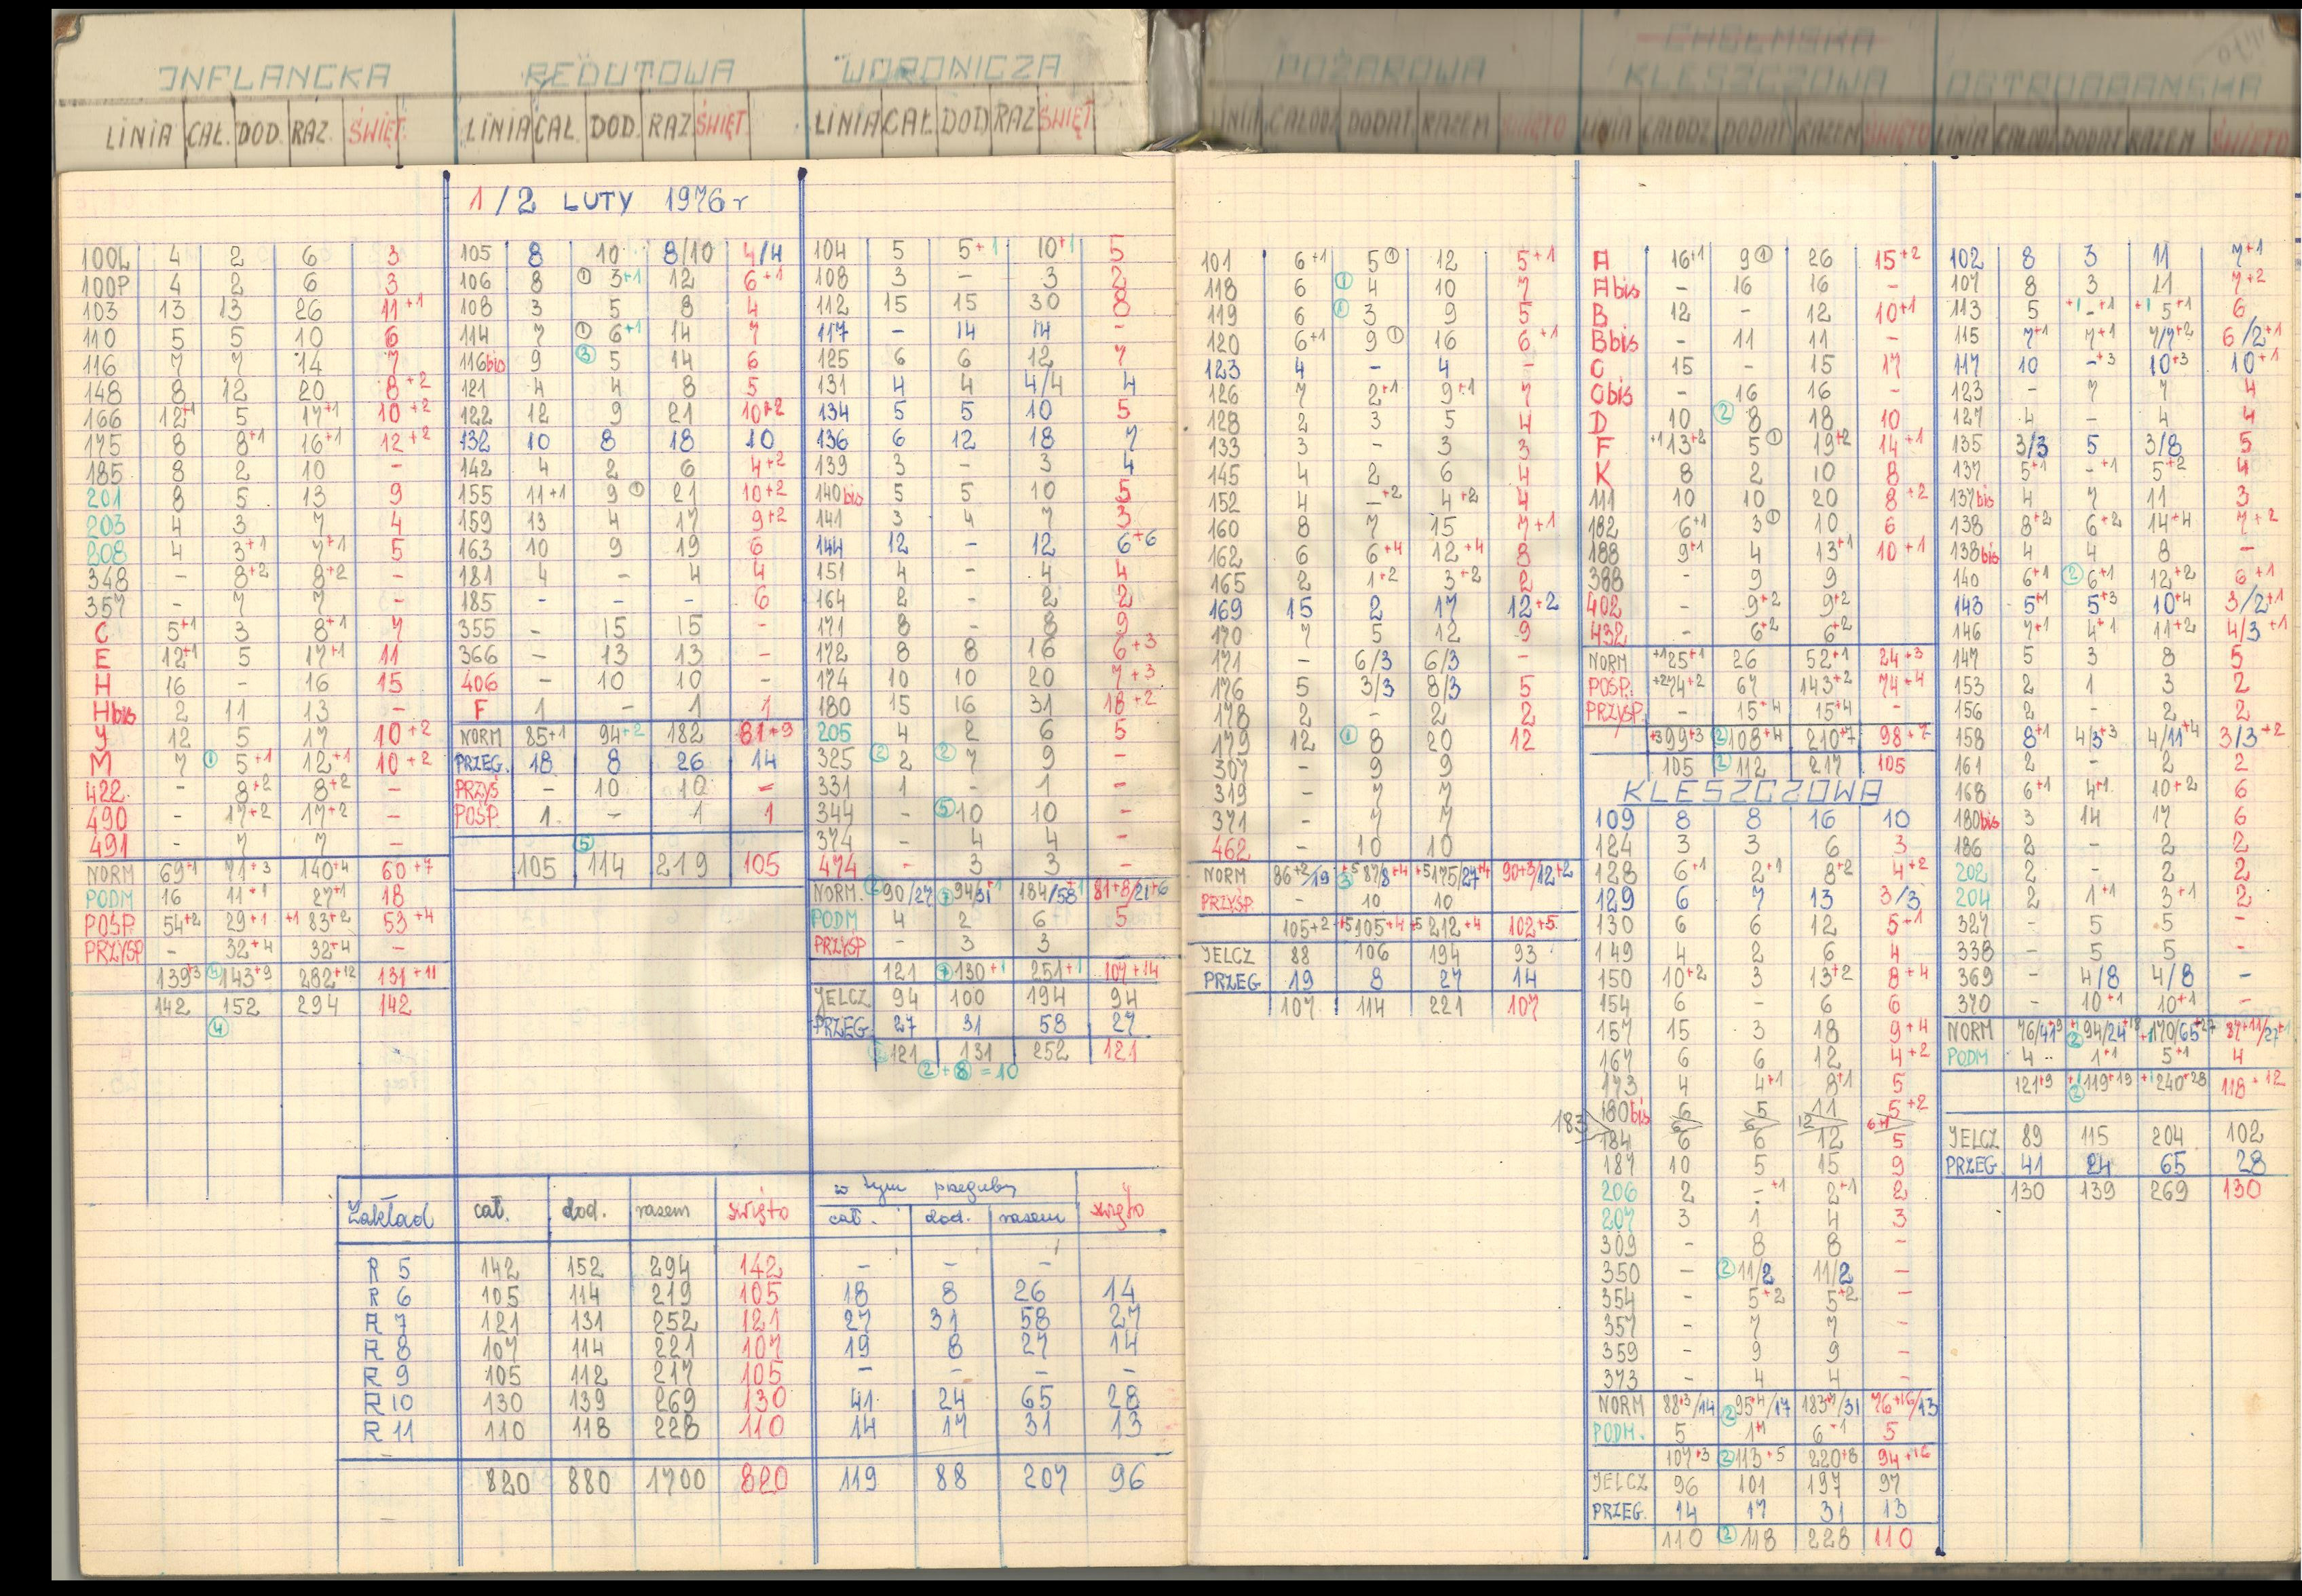 INFLANCKA
LINIA CAŁ. DOD. RAZ. ŚWIĘT.
REDUTOWA
LINIA CAŁ. DOD. RAZ ŚWIĘT.
WORONICZA
LINIA CAŁ DOD RAZ ŚWIĘT.
POŻAROWA
LINIA CAŁODZ DODAT RAZEM ŚWIĘTO
CHEŁMSKA
KLESZCZOWA
LINIA CAŁODZ DODAT RAZEM ŚWIĘTO
OSTROBRAMSKA
LINIA CAŁODZ DODAT RAZEM ŚWIĘTO
1/2 LUTY 1976 r
100L 4 2 6 3
100P 4 2 6 3
103 13 13 26 11+1
110 5 5 10 6
116 7 7 14 7
148 8 12 20 8+2
166 12+1 5 17+1 10+2
175 8 8+1 16+1 12+2
185 8 2 10 -
201 8 5 13 9
203 4 3 7 4
208 4 3+1 7+1 5
348 - 8+2 8+2 -
357 - 7 7 -
C 5+1 3 8+1 7
E 12+1 5 17+1 11
H 16 - 16 15
H bis 2 11 13 -
Y 12 5 17 10+2
M 7 ① 5+1 12+1 10+2
422 - 8+2 8+2 -
490 - 17+2 17+2 -
491 - 7 7 -
NORM 69+1 71+3 140+4 60+7
PODM 16 11+1 27+1 18
POŚP. 54+2 29+1 +1 83+2 53+4
PRZYSP - 32+4 32+4 -
139+3 ④ 143+9 282+12 131+11
142 152 294 142
④
105 8 10 8/10 4/4
106 8 ① 3+1 12 6+1
108 3 5 8 4
114 7 ① 6+1 14 7
116bis 9 ③ 5 14 6
121 4 4 8 5
122 12 9 21 10+2
132 10 8 18 10
142 4 2 6 4+2
155 11+1 9 ① 21 10+2
159 13 4 17 9+2
163 10 9 19 6
181 4 - 4 4
185 - - - 6
355 - 15 15 -
366 - 13 13 -
406 - 10 10 -
F 1 - 1 1
NORM 85+1 94+2 182 81+9
PRZEG. 18 8 26 14
PRZYŚ - 10 10 -
POŚP. 1 - 1 1
⑤
105 114 219 105
104 5 5+1 10+1 5
108 3 - 3 2
112 15 15 30 8
117 - 14 14 -
125 6 6 12 7
131 4 4 4/4 4
134 5 5 10 5
136 6 12 18 7
139 3 - 3 4
140bis 5 5 10 5
141 3 4 7 3
144 12 - 12 6+6
151 4 - 4 4
164 2 - 2 2
171 8 - 8 9
172 8 8 16 6+3
174 10 10 20 7+3
180 15 16 31 18+2
205 4 2 6 5
325 ② 2 ② 7 9 -
331 1 - 1 -
344 - ⑤ 10 10 -
374 - 4 4 -
474 - 3 3 -
NORM. 90/27 ⑦ 94/31+1 184/58+1 81+8/21+6
PODM 4 2 6 5
PRZYŚP - 3 3
121 ⑦ 130+1 251+1 107+14
JELCZ 94 100 194 94
PRZEG. 27 31 58 27
② 121 131 252 121
② + ⑧ = 10
Zakład cał. dod. razem święto
w tym przeguby
cał. dod. razem święto
R 5 142 152 294 142 - - -
R 6 105 114 219 105 18 8 26 14
R 7 121 131 252 121 27 31 58 27
R 8 107 114 221 107 19 8 27 14
R 9 105 112 217 105 - - - -
R 10 130 139 269 130 41 24 65 28
R 11 110 118 228 110 14 17 31 13
820 880 1700 820 119 88 207 96
101 6+1 5 ① 12 5+1
118 6 ① 4 10 7
119 6 ① 3 9 5
120 6+1 9 ① 16 6+1
123 4 - 4 -
126 7 2+1 9+1 7
128 2 3 5 4
133 3 - 3 3
145 4 2 6 4
152 4 -+2 4+2 4
160 8 7 15 7+1
162 6 6+4 12+4 8
165 2 1+2 3+2 2
169 15 2 17 12+2
170 7 5 12 9
171 - 6/3 6/3 -
176 5 3/3 8/3 5
178 2 - 2 2
179 12 ① 8 20 12
307 - 9 9
319 - 7 7
371 - 7 7
462 - 10 10
NORM 86+2/19 ③ +5 87/8+4 +5 175/27+4 90+3/12+2
PRZYŚP. - 10 10
105+2 +5 105+4 +5 212+4 102+5
JELCZ 88 106 194 93
PRZEG 19 8 27 14
107 114 221 107
A 16+1 9 ① 26 15+2
A bis - 16 16 -
B 12 - 12 10+1
B bis - 11 11 -
C 15 - 15 17
C bis - 16 16 -
D 10 ② 8 18 10
F +1 13+2 5 ① 19+2 14+1
K 8 2 10 8
111 10 10 20 8+2
182 6+1 3 ① 10 6
188 9+1 4 13+1 10+1
388 - 9 9
402 - 9+2 9+2
432 - 6+2 6+2
NORM +1 25+1 26 52+1 24+3
POŚP. +2 74+2 67 143+2 74+4
PRZYSP. - 15+4 15+4 -
+3 99+3 ② 108+4 210+7 98+7
105 ② 112 217 105
KLESZCZOWA
109 8 8 16 10
124 3 3 6 3
128 6+1 2+1 8+2 4+2
129 6 7 13 3/3
130 6 6 12 5+1
149 4 2 6 4
150 10+2 3 13+2 8+4
154 6 - 6 6
157 15 3 18 9+4
167 6 6 12 4+2
173 4 4+1 8+1 5
180bis 6 5 11 5+2
183 6 6 12 6+1
184 6 6 12 5
187 10 5 15 9
206 2 -+1 2+1 2
207 3 1 4 3
309 - 8 8 -
350 - ② 11/2 11/2 -
354 - 5+2 5+2 -
357 - 7 7 -
359 - 9 9 -
373 - 4 4 -
NORM 88+3/14 ② 95+4/17 183+7/31 76+16/13
PODM. 5 1+1 6+1 5
107+3 ② 113+5 220+8 94+16
JELCZ 96 101 197 97
PRZEG. 14 17 31 13
110 ② 118 228 110
102 8 3 11 7+1
107 8 3 11 7+2
113 5 +1 -+1 +1 5+1 6
115 7+1 7+1 7/7+2 6/2+1
117 10 -+3 10+3 10+1
123 - 7 7 4
127 4 - 4 4
135 3/3 5 3/8 5
137 5+1 -+1 5+2 4
137bis 4 7 11 3
138 8+2 6+2 14+4 7+2
138bis 4 4 8 -
140 6+1 ② 6+1 12+2 6+1
143 5+1 5+3 10+4 3/2+1
146 7+1 4+1 11+2 4/3+1
147 5 3 8 5
153 2 1 3 2
156 2 - 2 2
158 8+1 4/3+3 4/11+4 3/3+2
161 2 - 2 2
168 6+1 4+1 10+2 6
180bis 3 14 17 6
186 2 - 2 2
202 2 - 2 2
204 2 1+1 3+1 2
327 - 5 5 -
338 - 5 5 -
369 - 4/8 4/8 -
370 - 10+1 10+1 -
NORM 76/41+9 ② 94/24+18 +1 170/65+27
PODM 4 1+1 5+1 4
121+9 +1 ② 119+19 +1 240+28 118+12
JELCZ 89 115 204 102
PRZEG. 41 24 65 28
130 139 269 130